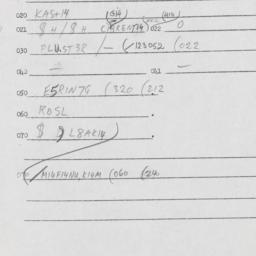 020 KAST14 (514 (414
021 $ H/$H CARENT74) 022 0
030 PLUST38 /- (123052 (022
040 - 041 -
050 E5RIN7G (320 (212
060 RDSL .
070 $ L8AK14) .
MI4F14NU,KI4M (060 (24